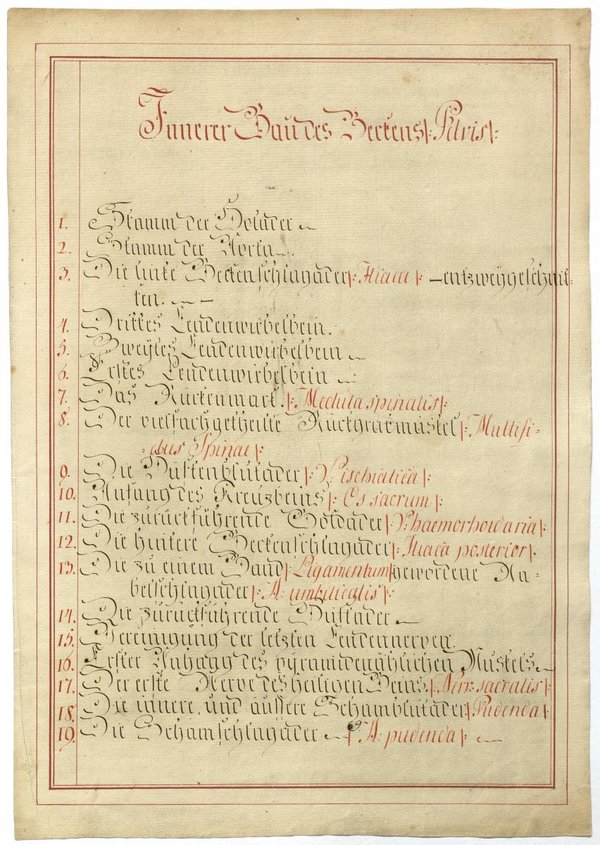 Innerer Bau des Beckens |: Pelvis :|
1. Stamm der Holader
2. Stamm der Aorta.
3. Die linke Beckenschlagader |: Iliaca :| – entzweygeschnit-
ten. –
4. Drittes Lendenwirbelbein.
5. Zweytes Lendenwirbelbein
6. Erstes Lendenwirbelbein
7. Das Rückenmark |: Medula spinalis :|
8. Der vielfachgetheilte Rückgratmuskel |: Multifi-
dus Spinae :|
9. Die Hüftenblutader |: V. Ischiatica :|
10. Anfang des Kreuzbeins |: Os sacrum :|
11. Die zurückführende Goldader |: V. haemorhoidaria :|
12. Die hintere Beckenschlagader |: Iliaca posterior :|
13. Die zu einem Band |: Ligamentum :| gewordene Na-
belschlagader |: A. umbilicalis :|
14. Die zurückführende Hüftader
15. Vereinigung der letzten Lendennerven
16. Erster Anhang des pyramidenähnlichen Muskels
17. Der erste Nerve des heiligen Beins |: Nerv. sacralis :|
18. Die innere und äussere Schamblutader |: Pudenda :|
19. Die Schamschlagader |: A. pudenda :|